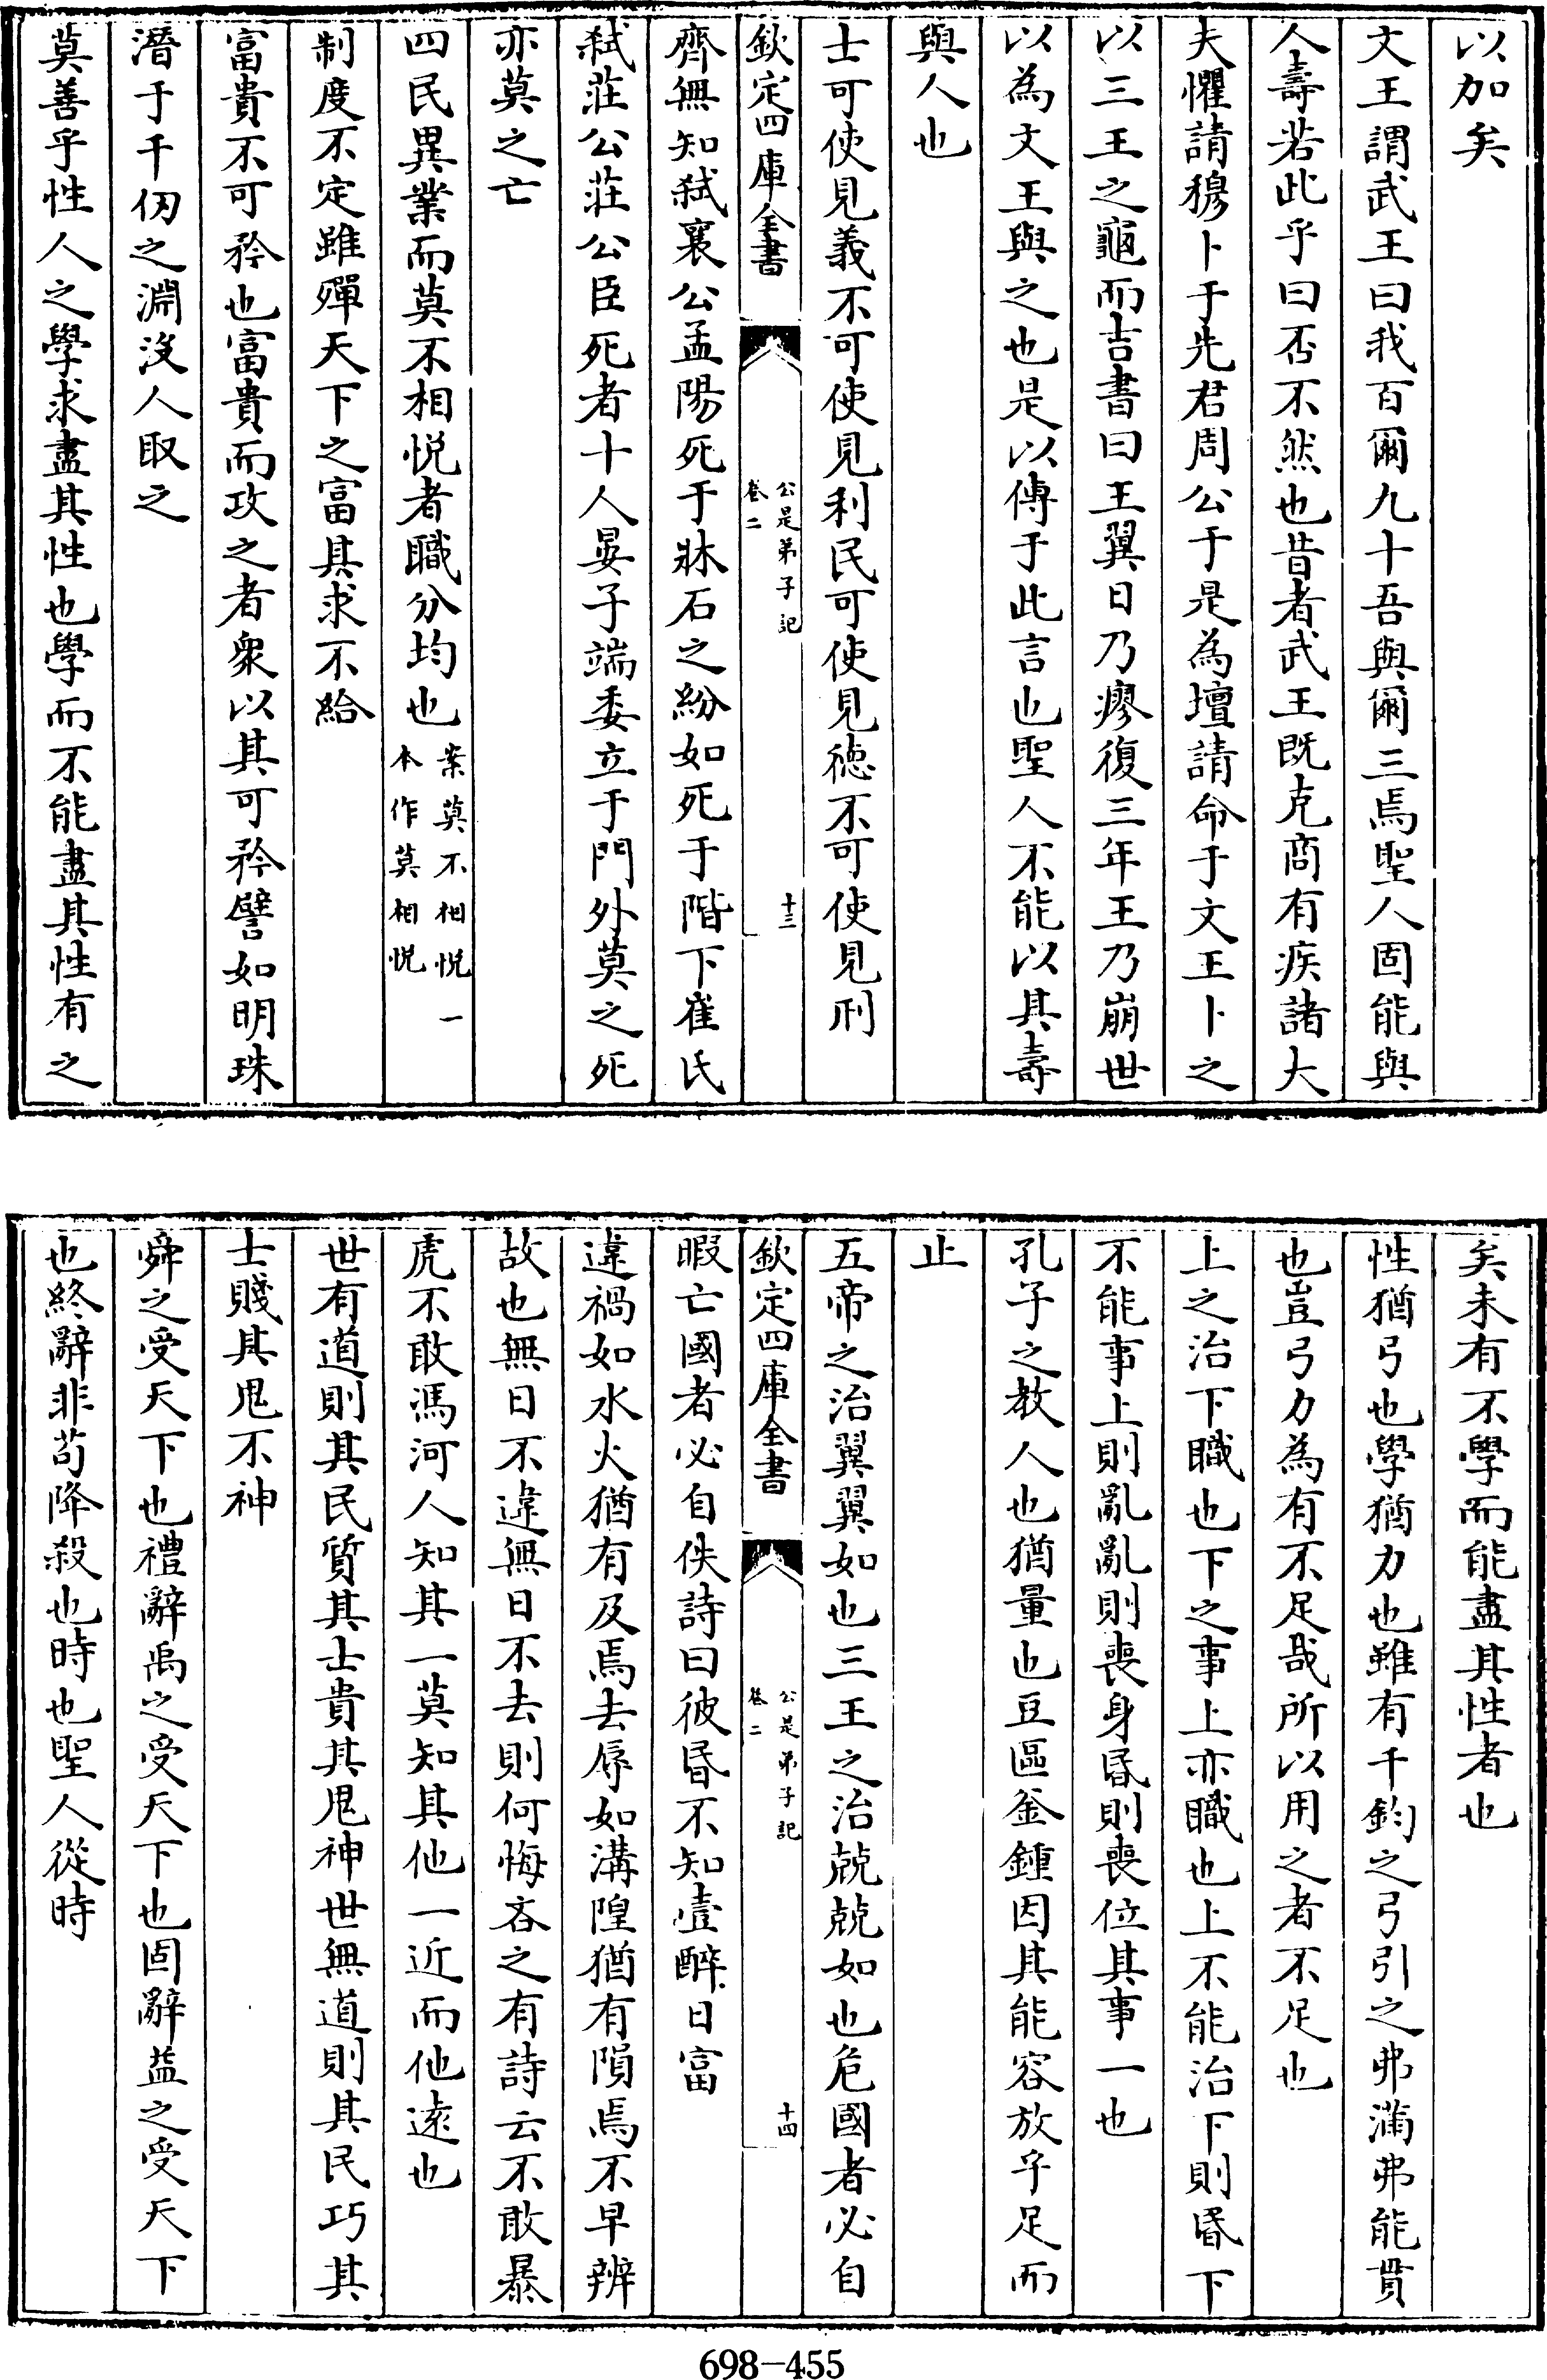 以加矣
文王謂武王曰我百爾九十吾與爾三焉聖人固能與
人壽若此乎曰否不然也昔者武王既克商有疾諸大
夫懼請穆卜于先君周公于是為壇請命于文王卜之
以三王之龜而吉書曰王翼日乃瘳復三年王乃崩世
以為文王與之也是以傳于此言也聖人不能以其壽
與人也
士可使見義不可使見利民可使見徳不可使見刑
欽定四庫全書
公是弟子記
卷二
十三
齊無知弑襄公孟陽死于牀石之紛如死于階下崔氏
弑莊公莊公臣死者十人晏子端委立于門外莫之死
亦莫之亡
四民異業而莫不相悦者職分均也案莫不相悦一
本作莫相悦
制度不定雖殫天下之富其求不給
富貴不可矜也富貴而攻之者衆以其可矜譬如明珠
潛于千仞之淵沒人取之
莫善乎性人之學求盡其性也學而不能盡其性有之
矣未有不學而能盡其性者也
性猶弓也學猶力也雖有千鈞之弓引之弗滿弗能貫
也豈弓力為有不足哉所以用之者不足也
上之治下職也下之事上亦職也上不能治下則昬下
不能事上則亂亂則喪身昬則喪位其事一也
孔子之教人也猶量也豆區釜鍾因其能容放乎足而
止
五帝之治翼翼如也三王之治兢兢如也危國者必自
欽定四庫全書
公是弟子記
卷二
十四
暇亡國者必自佚詩曰彼昬不知壹醉日富
違禍如水火猶有及焉去辱如溝隍猶有隕焉不早辨
故也無日不違無日不去則何悔吝之有詩云不敢暴
虎不敢馮河人知其一莫知其他一近而他逺也
世有道則其民質其士貴其鬼神世無道則其民巧其
士賤其鬼不神
舜之受天下也禮辭禹之受天下也固辭益之受天下
也終辭非苟降殺也時也聖人從時
698-455